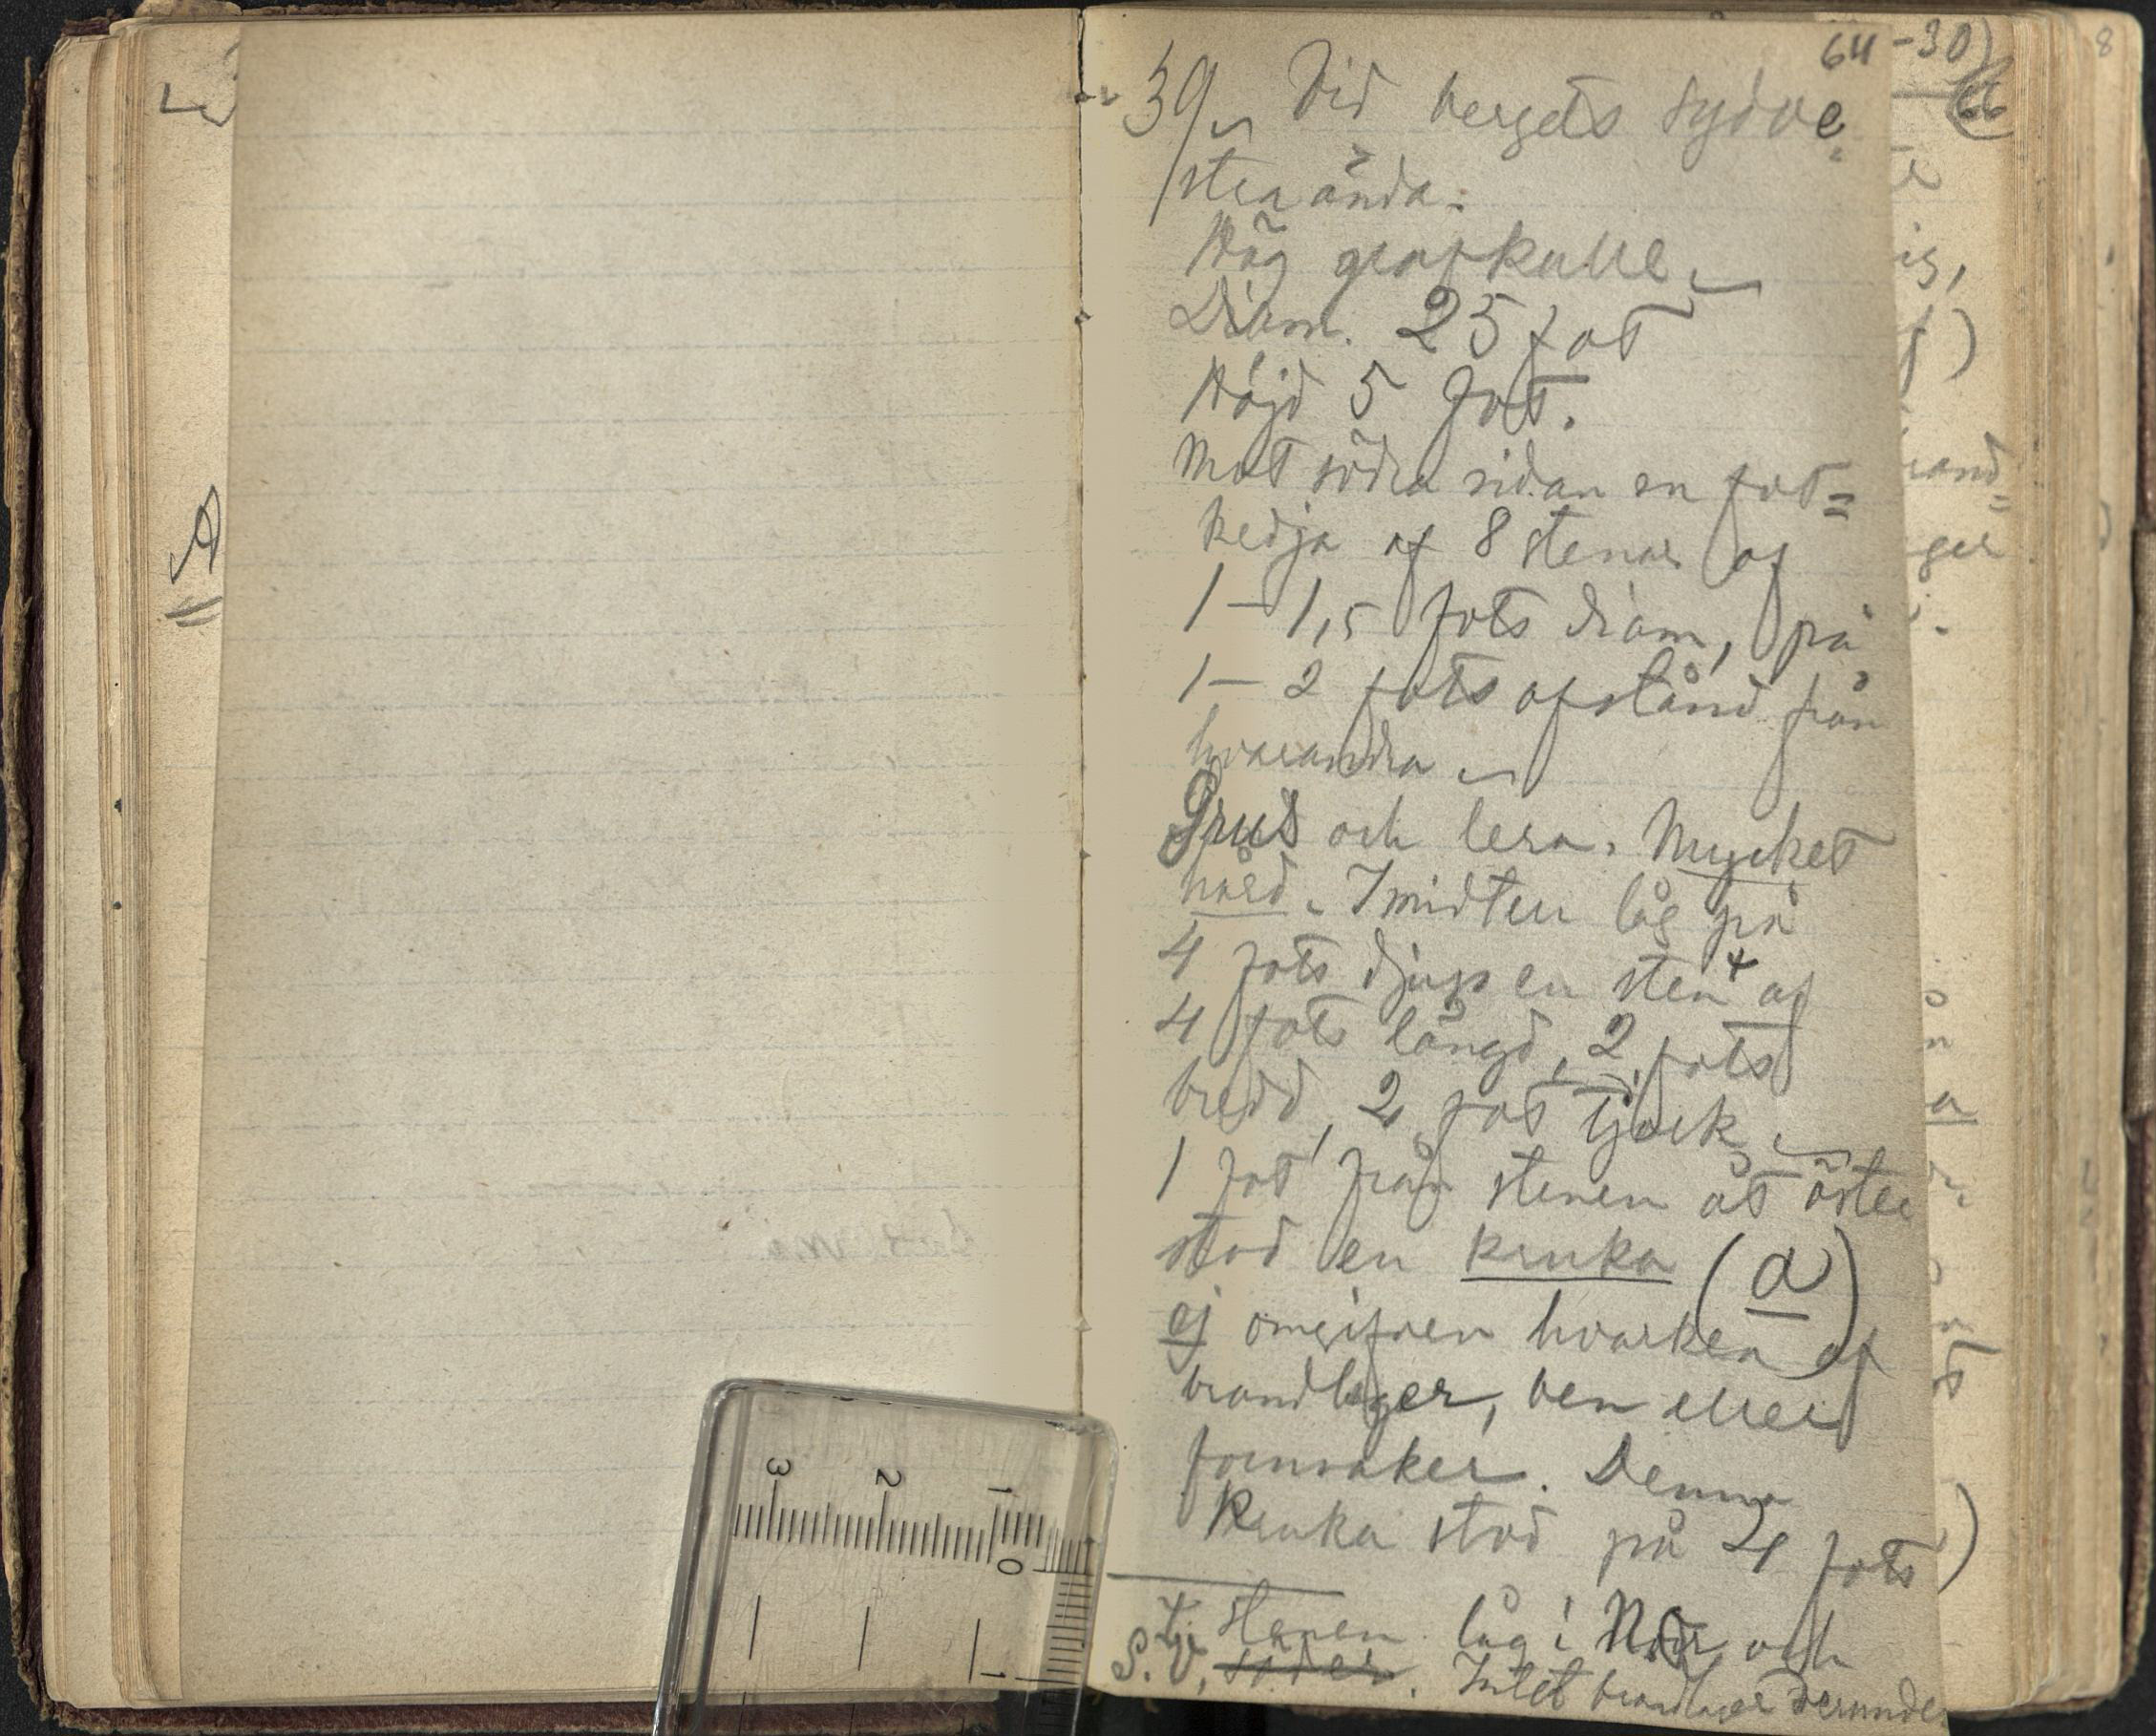 A
64
39, Vid bergets sydve-
stra ända.
Hög grafkulle.
Diam. 25 fot
Höjd 5 fot.
Mot södra sidan en fot=
kedja af 8 stenar af
1–1,5 fots diam, på
1–2 fots afstånd från
hvarandra.
Grus och lera. Mycket
hård. I midten låg på
4 fots djup en sten + af
4 fots längd, 2 fots
bredd, 2 fot tjock.
1 fot från stenen åt öster
stod en kruka (a)
ej omgifven hvarken af
brandlager, ben eller
fornsaker. Denna
Kruka stod på 4 fots
+ stenen låg i N.O. och
S.V. söder. Intet brandlager derunder
-30)
66
is,
f)
rand=
ger
8